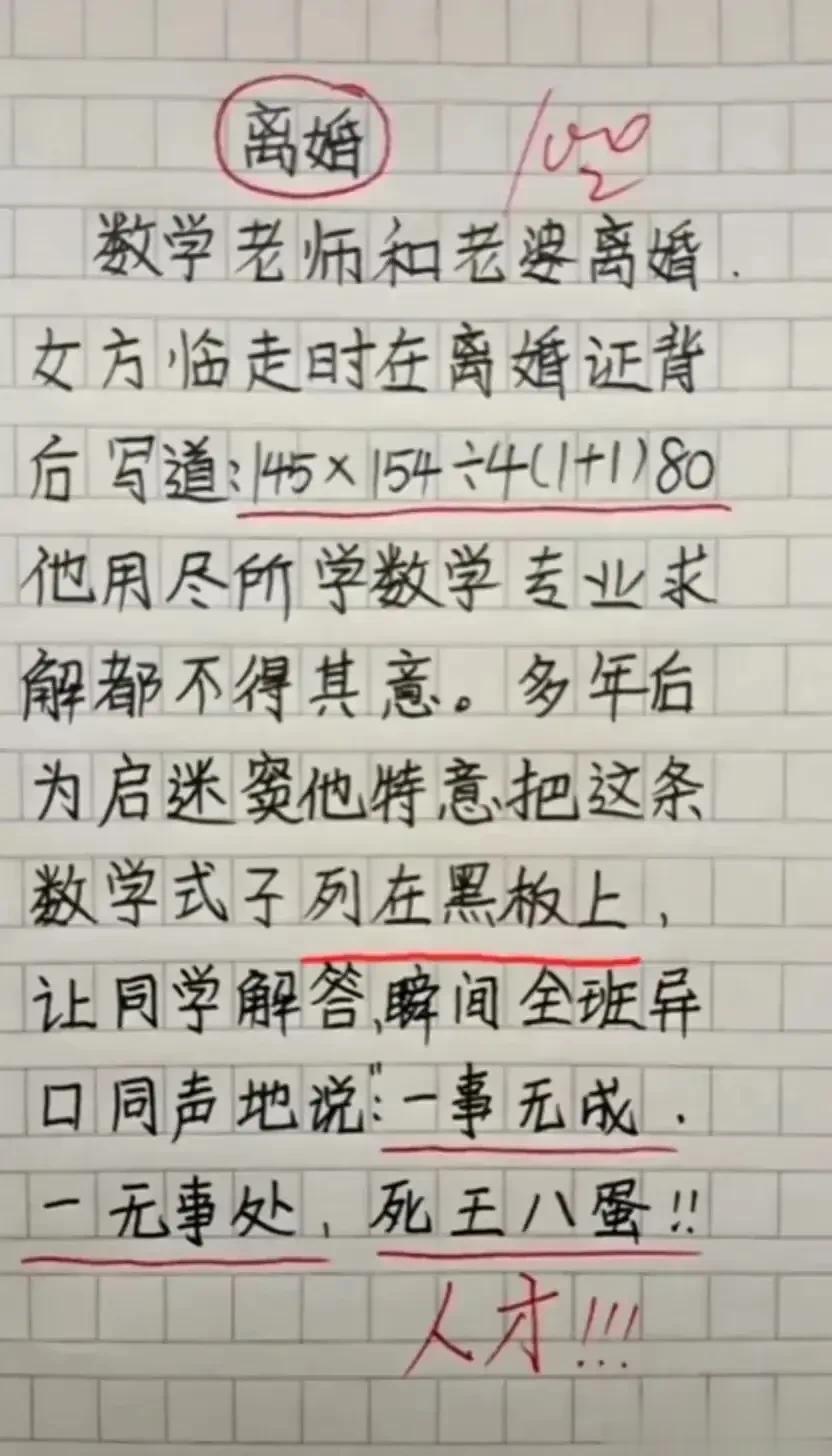 离婚 100
数学老师和老婆离婚.
女方临走时在离婚证背
后写道:145×154÷4(1+1)80
他用尽所学数学专业求
解都不得其意。多年后
为启迷窦他特意把这条
数学式子列在黑板上,
让同学解答,瞬间全班异
口同声地说:"一事无成.
一无事处,死王八蛋!!
人才!!!